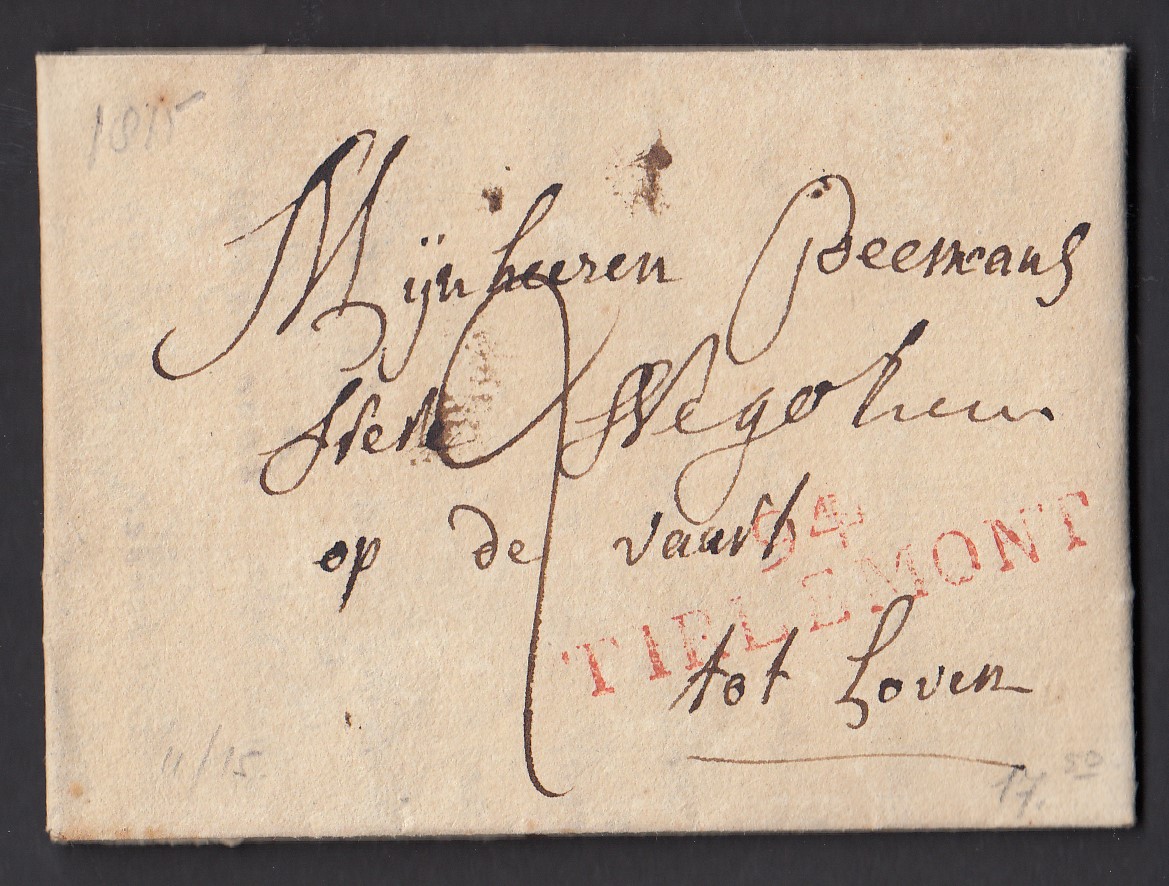 1815
Mijnheeren Peemans
op de vaart
94
TIRLEMONT
tot Loven
11/15
17. 50